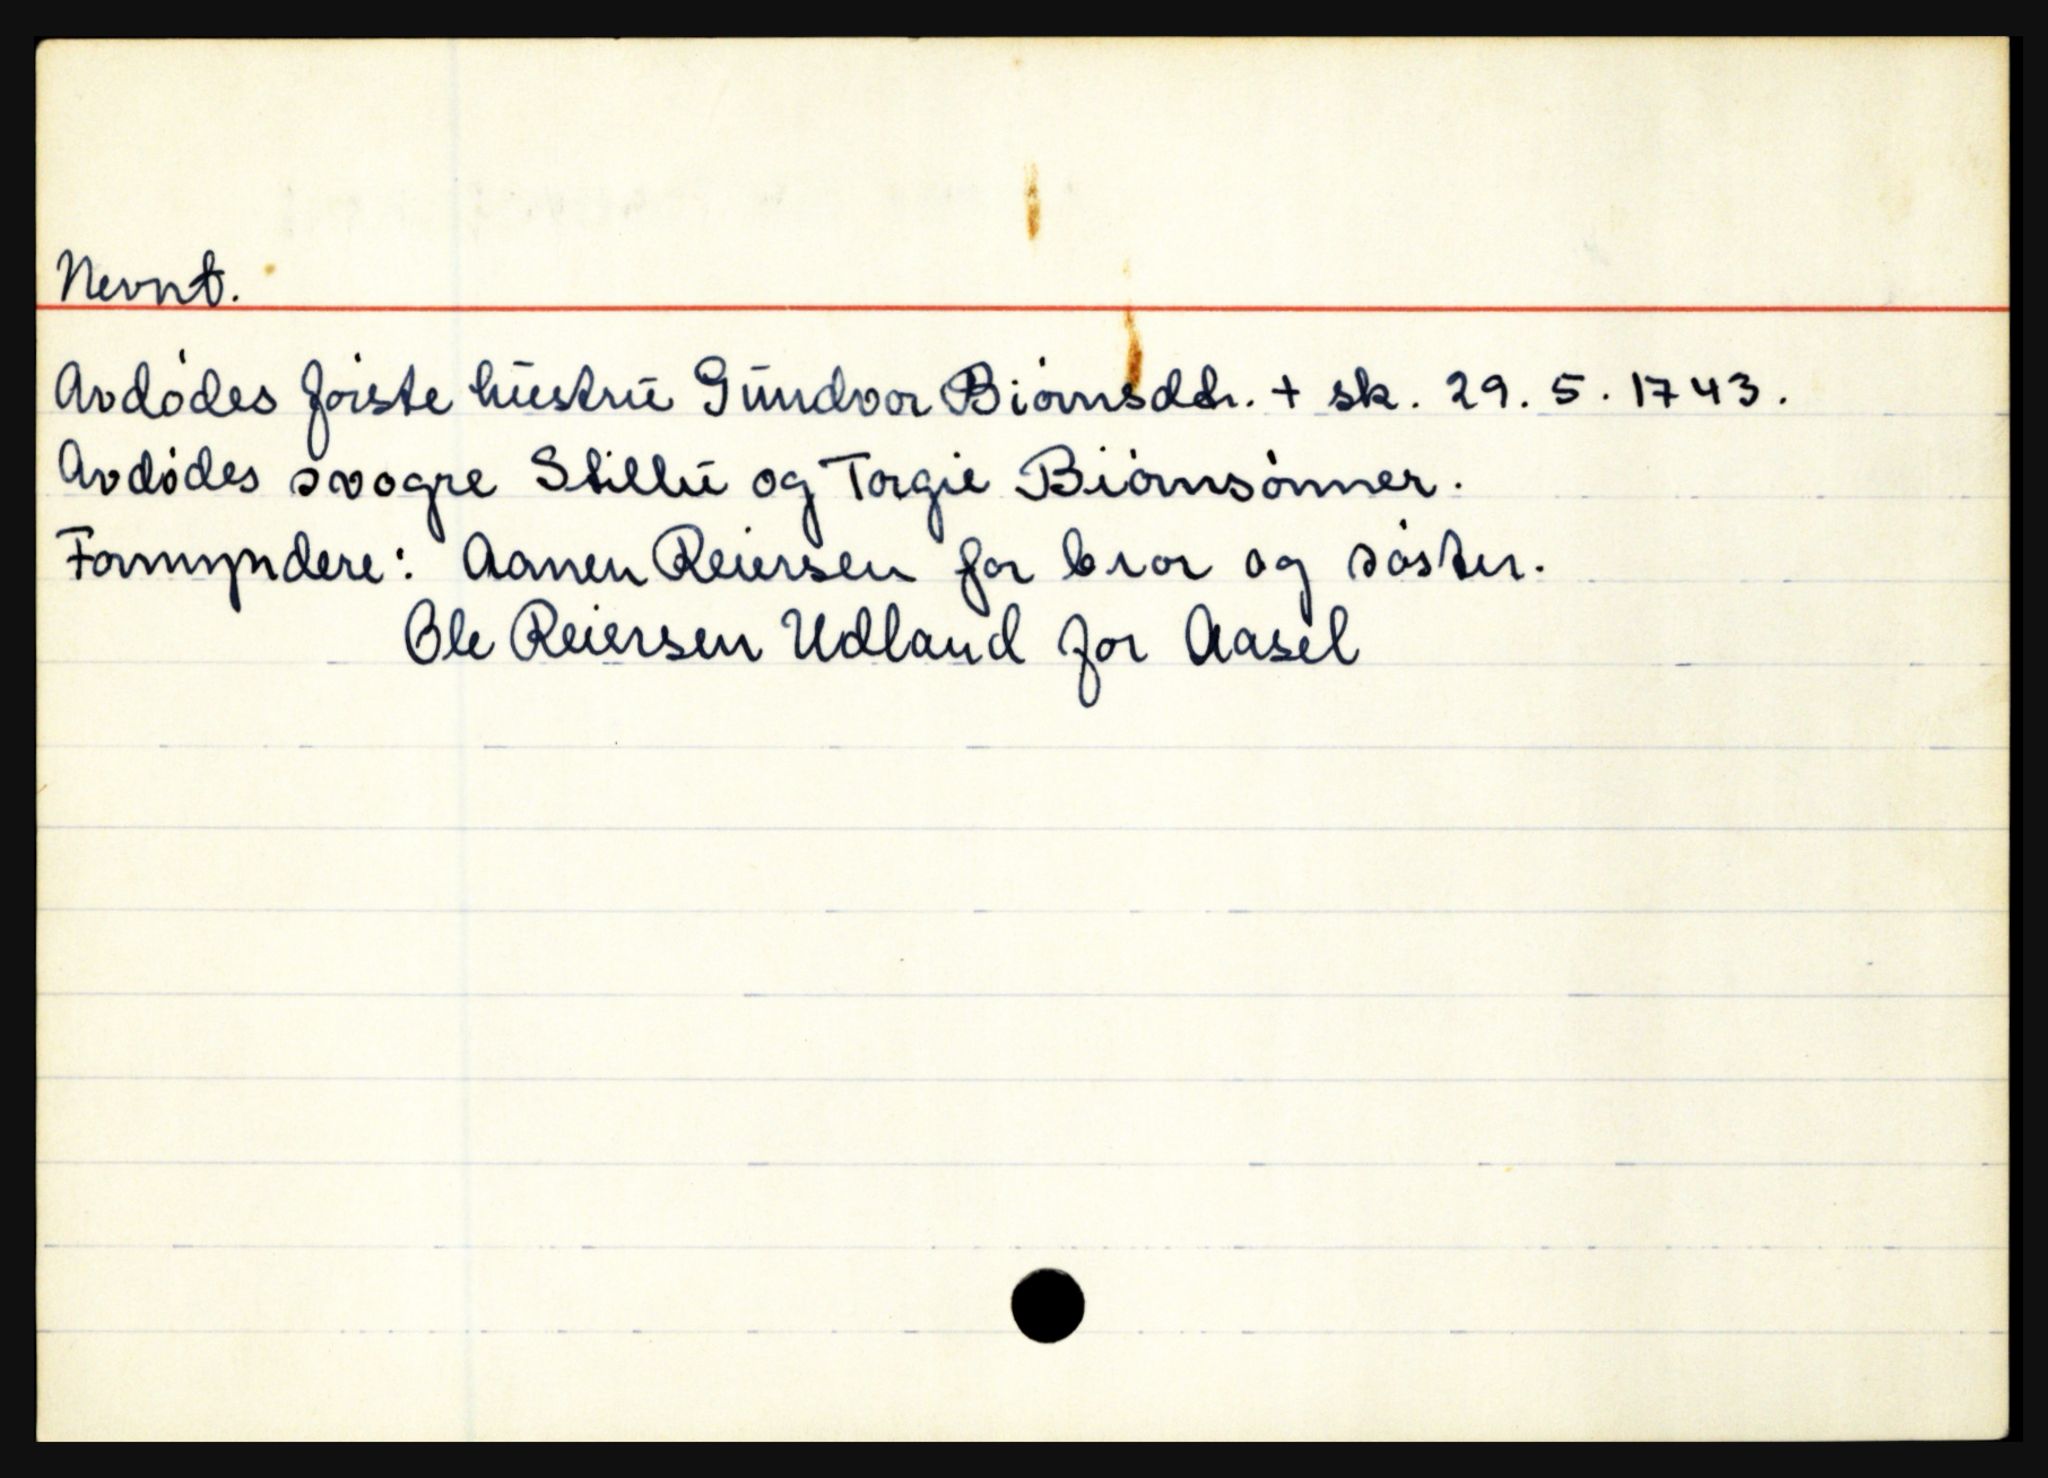 Nevnt.
Avdødes første hustru Gundvor Biørnsdtr. + sk. 29. 5. 1743.
Avdødes svogre Stillu og Torgie Biørnsønner.
Formyndere: Aanen Reiersen for bror og søster.
Ole Reiersen Udland for Aasel